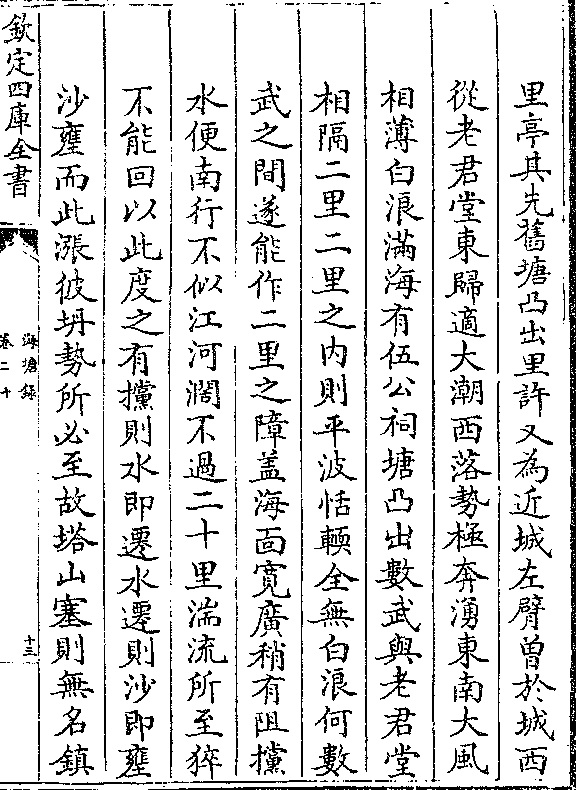 里亭其先舊塘凸出里許又為近城左臂曾於城西
從老君堂東歸適大潮西落勢極奔湧東南大風
相薄白浪滿海有伍公祠塘凸出數武與老君堂
相隔二里二里之内則平波恬輭全無白浪何數
武之間遂能作二里之障盖海面寛廣稍有阻攩
水便南行不似江河濶不過二十里湍流所至猝
不能回以此度之有攩則水即遷水遷則沙即壅
沙壅而此漲彼坍勢所必至故塔山塞則無名鎮
欽定四庫全書
海塘録
卷二十
十三